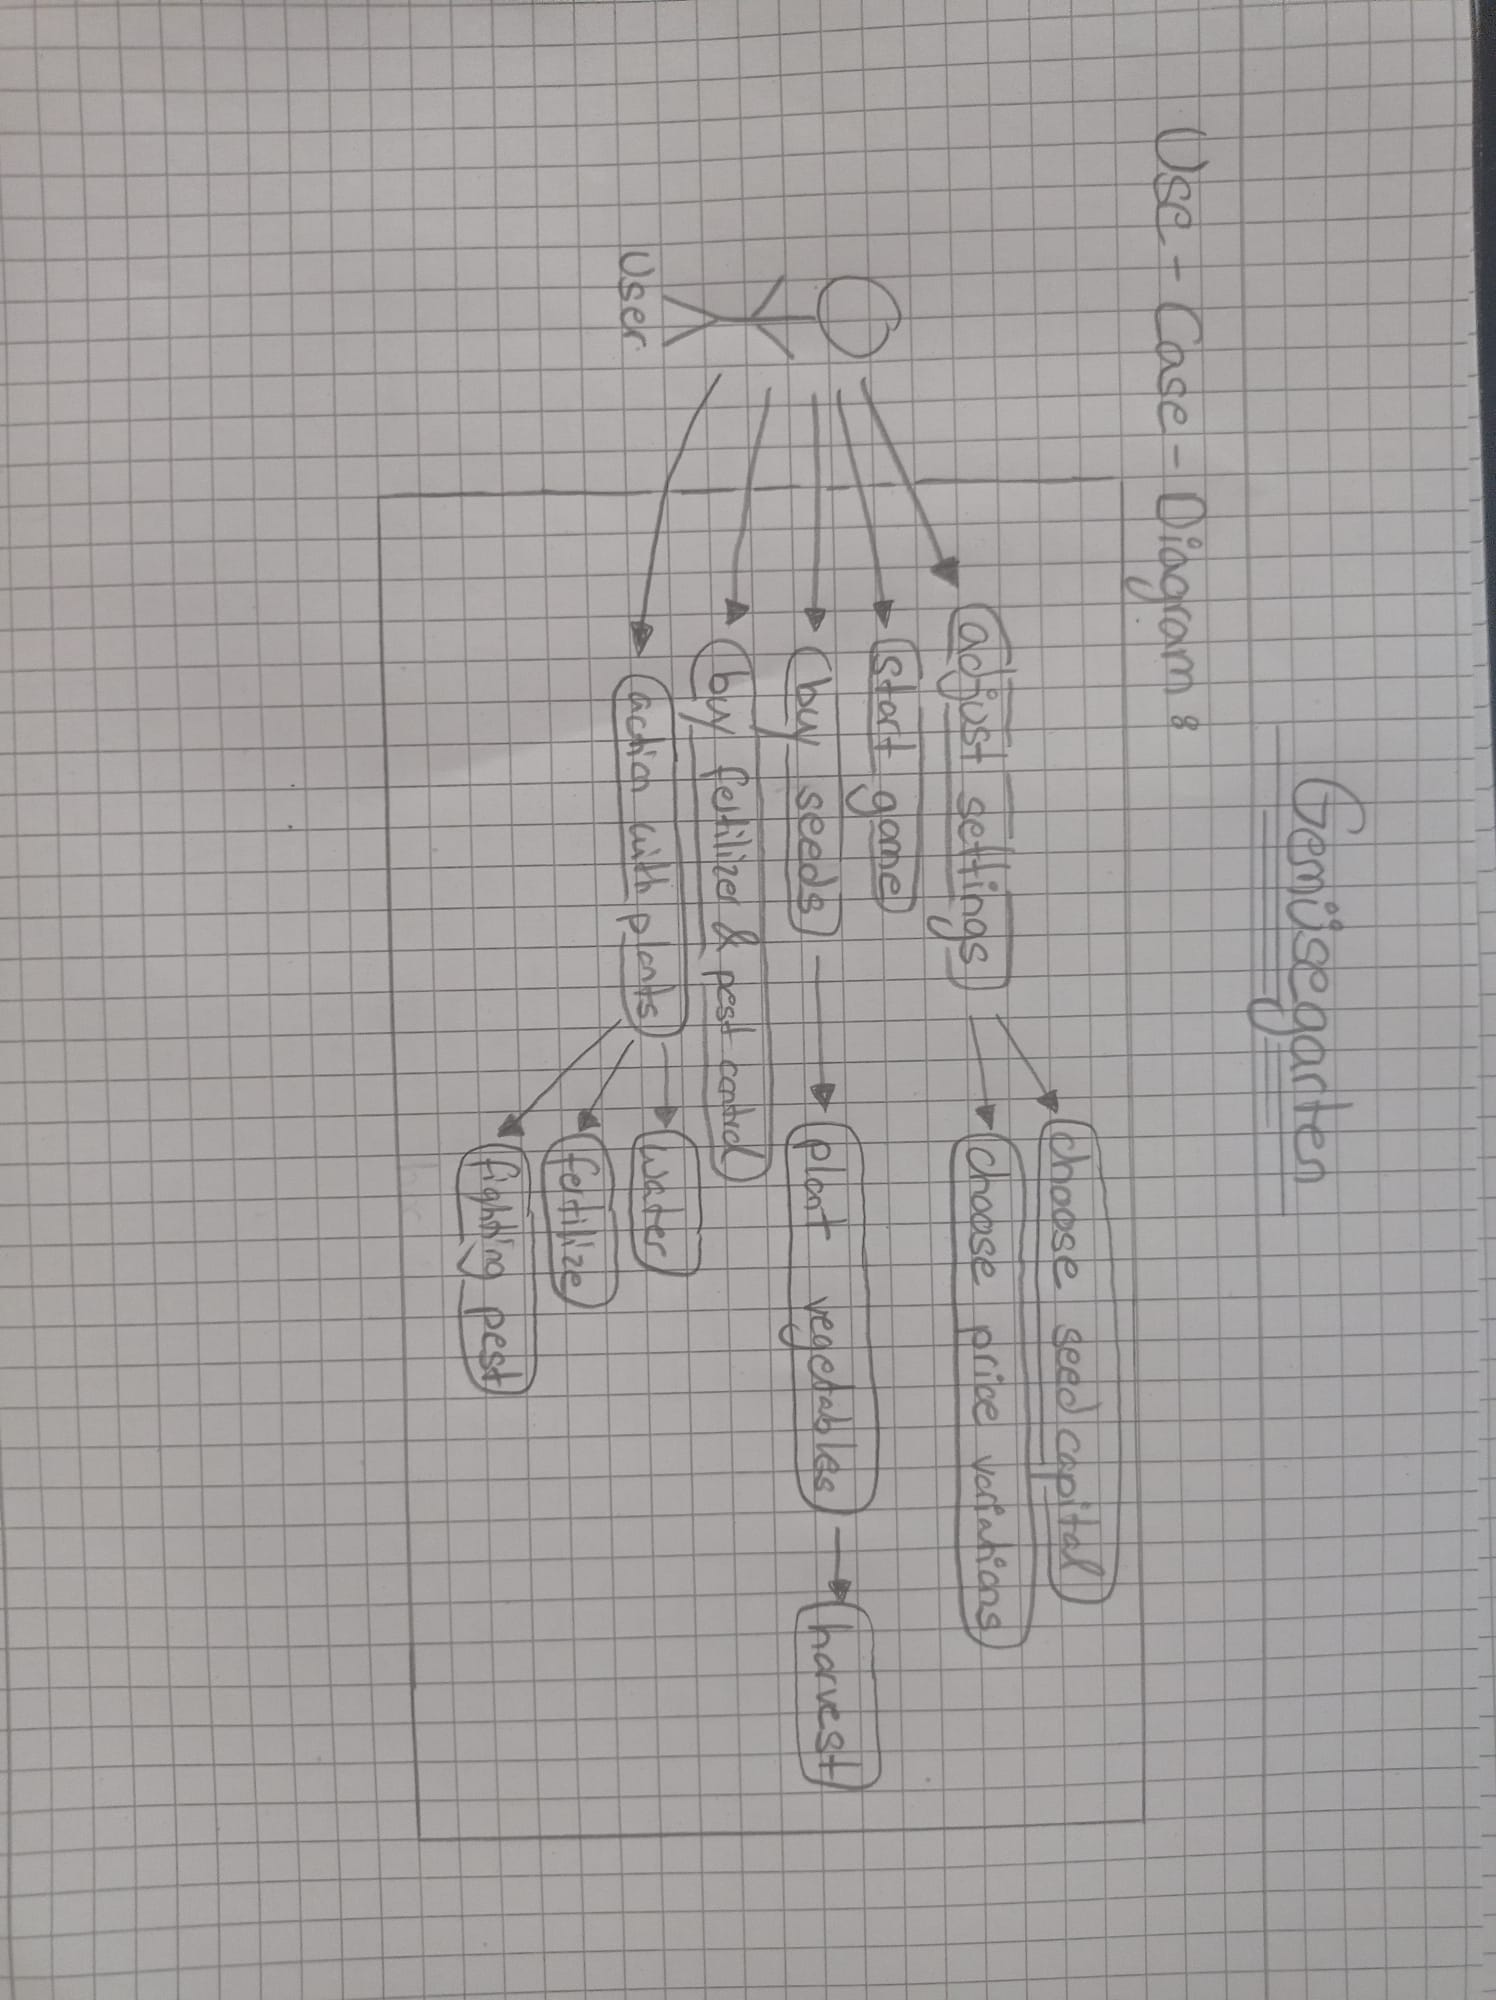 Gemüsegarten
Use-Case-Diagram:
User
adjust settings
choose seed capital
choose price variations
start game
buy seeds
plant vegetables
harvest
buy fertilizer & pest control
action with plants
water
fertilize
fighting pest